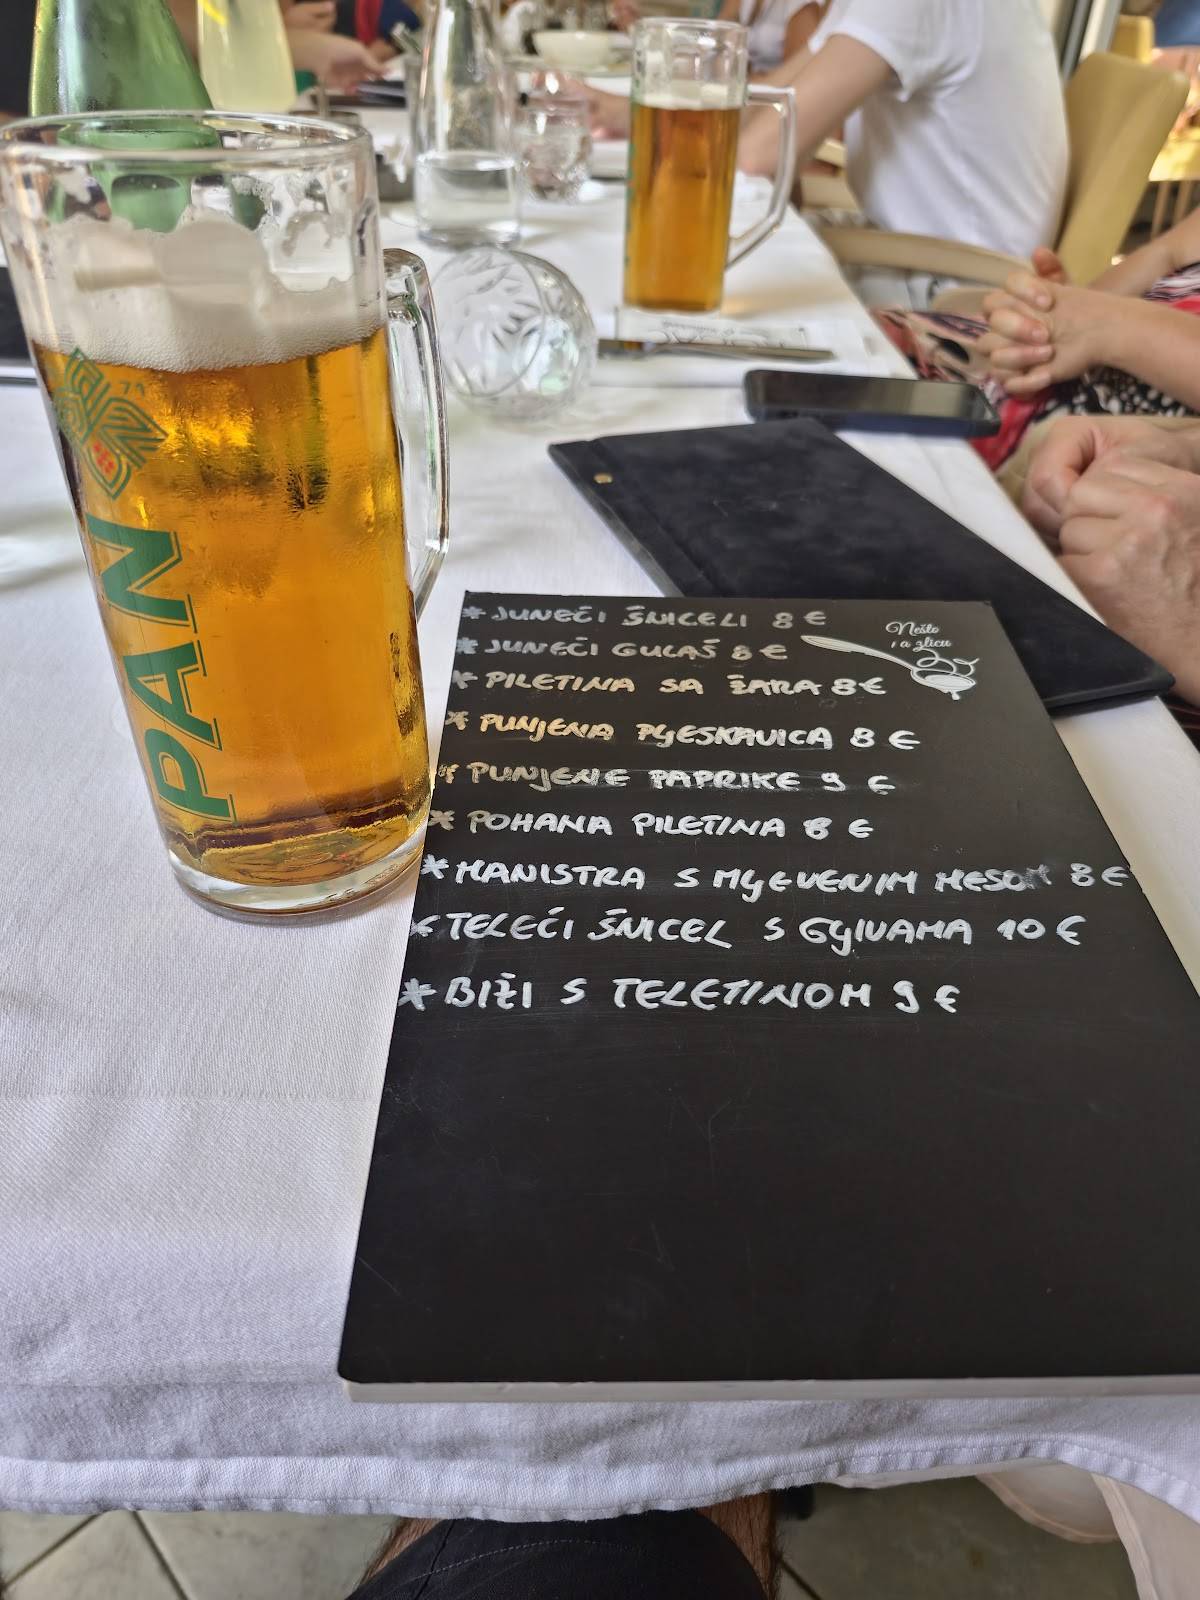 PAN
* JUNEĆI ŠNICELI 8 €
* JUNEĆI GULAŠ 8 €
* PILETINA SA ŽARA 8 €
* PUNJENA PLJESKAVICA 8 €
* PUNJENE PAPRIKE 9 €
* POHANA PILETINA 8 €
* MANISTRA S MLJEVENIM MESOM 8 €
* TELEĆI ŠNICEL S GLJIVAMA 10 €
* BIŽI S TELETINOM 9 €
Nešto
na žlicu